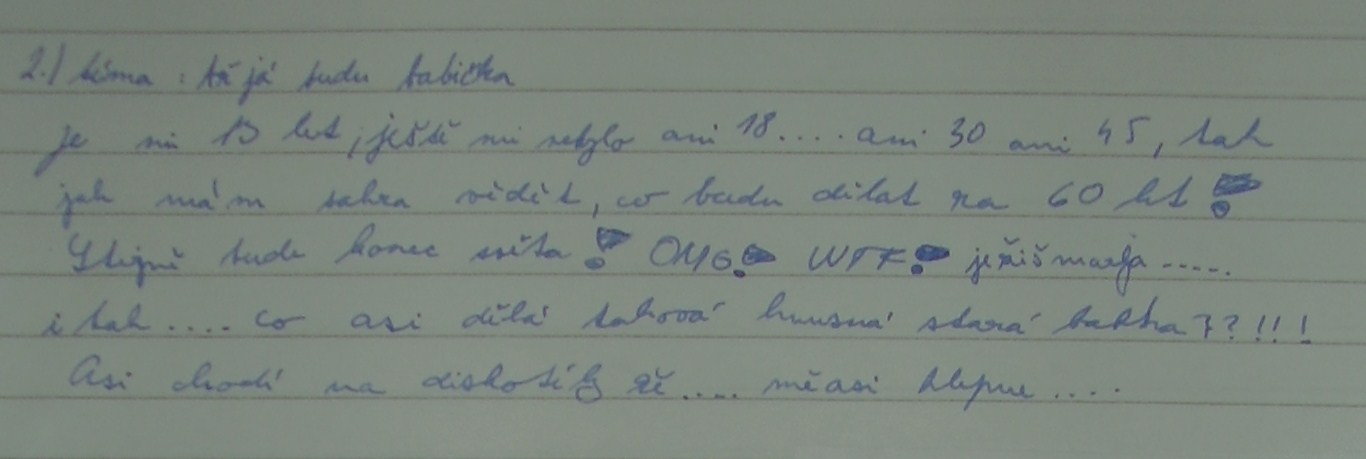 2.) téma : až já budu babička
je mi 13 let, ještě mi nebylo ani 18.... ani 30 ani 45, tak
jak mám sakra vědět, co budu dělat na 60 let!
Stejně bude konec světa! OMG! WTF! ježišmarja.....
i tak .... co asi dělá taková hnusná stará babka ??!!!
Asi chodí na diskotéky že..... mě asi klepne ....